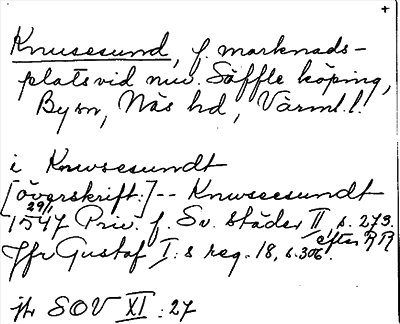 +
Knusesund, f. marknads-
plats vid nuv. Säffle köping,
By sn, Näs hd, Värml. l.
i Knwsesundt
[överskrift:] -- Knwseesundt
1547 29/11 Priv. f. Sv. städer II, s. 273.
Jfr Gustaf I:s reg. 18, s. 306. efter RR
jfr SOV XI: 27